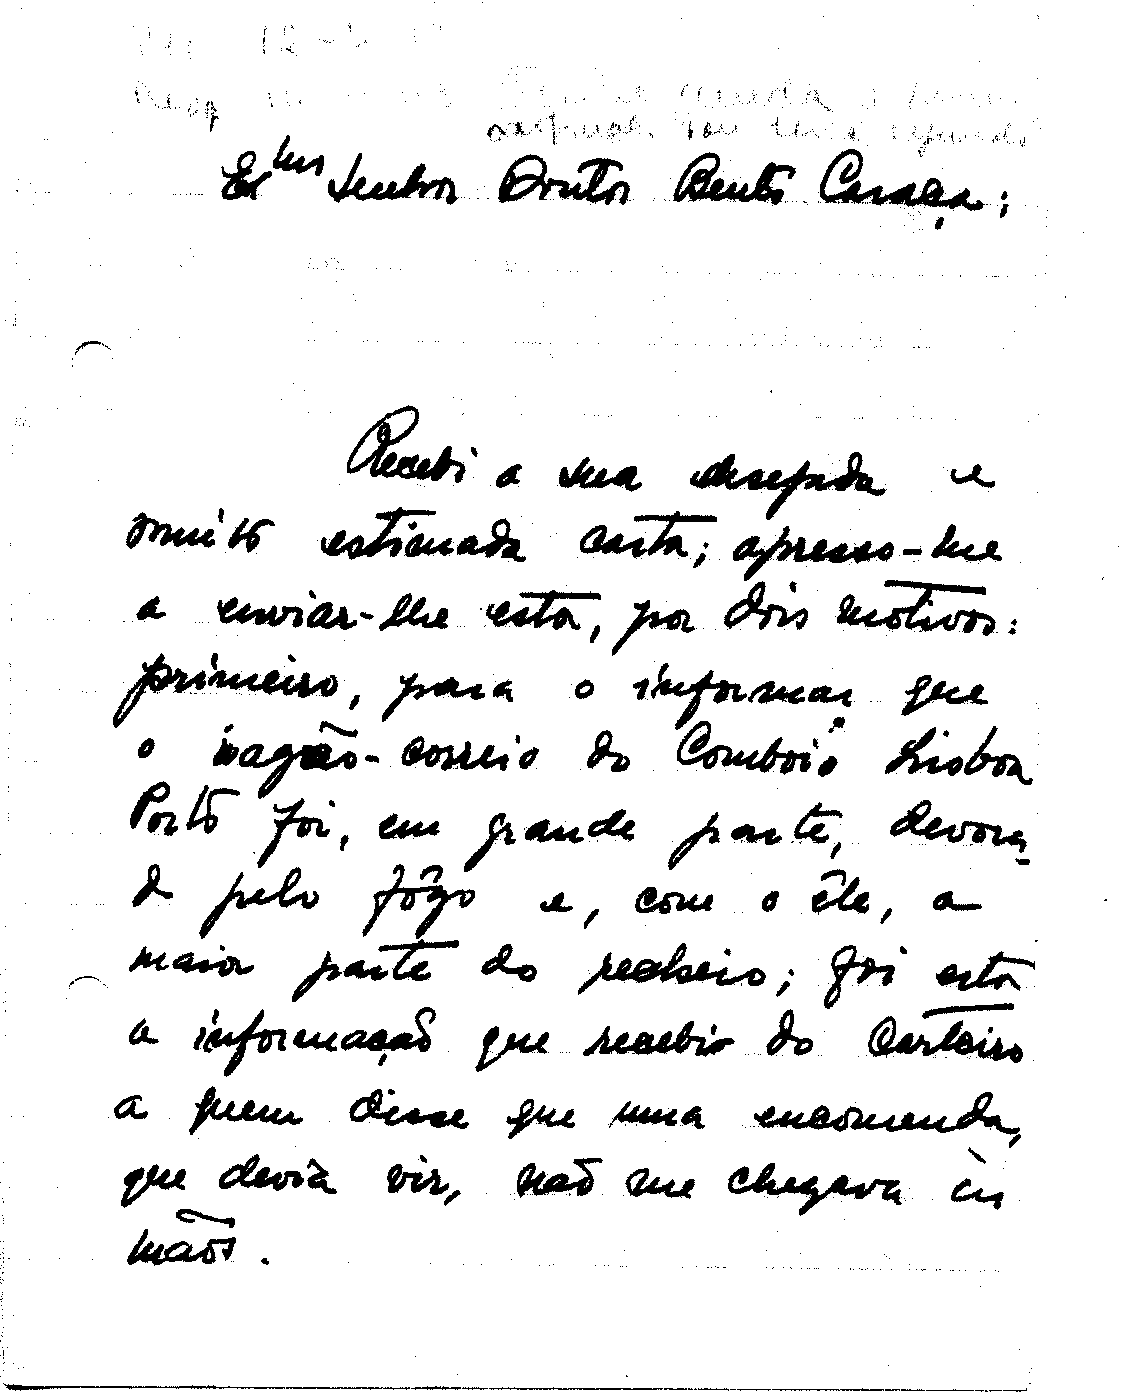 12-
Resp
Ex.mo Senhor Doutor Bento Caraça;
Recebi a sua desejada e
muito estimada carta; apresso-me
a enviar-lhe esta, por dois motivos:
primeiro, para o informar que
o vagão-correio do Comboio Lisboa
Porto foi, em grande parte, devora-
do pelo fôgo e, com o êle, a
maior parte do recheio; foi esta
a informação que recebi do Carteiro
a quem disse que uma encomenda,
que devia vir, não me chegava às
mãos.